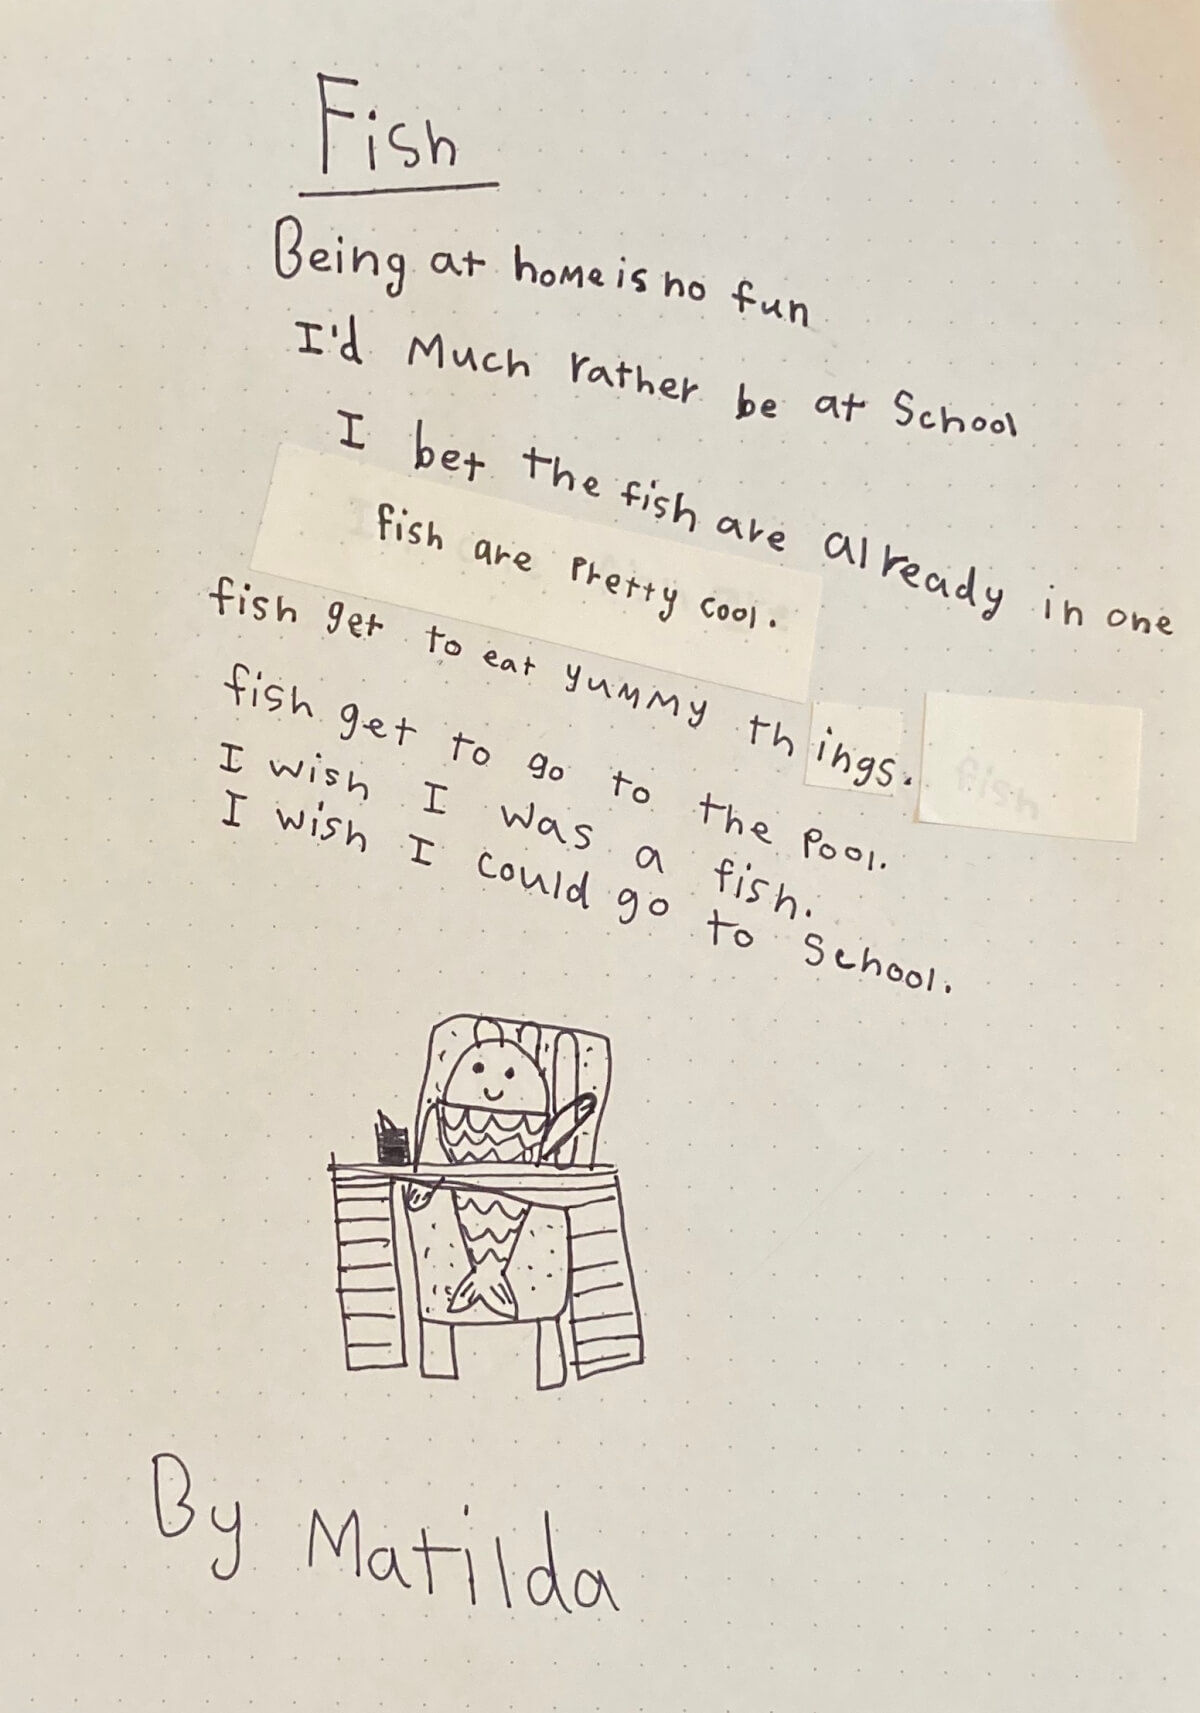 Fish
Being at home is no fun
I'd Much rather be at School
I bet the fish are already in one
fish are Pretty cool.
fish get to eat yummy things.
fish get to go to the Pool.
I wish I was a fish.
I wish I could go to School.
By Matilda